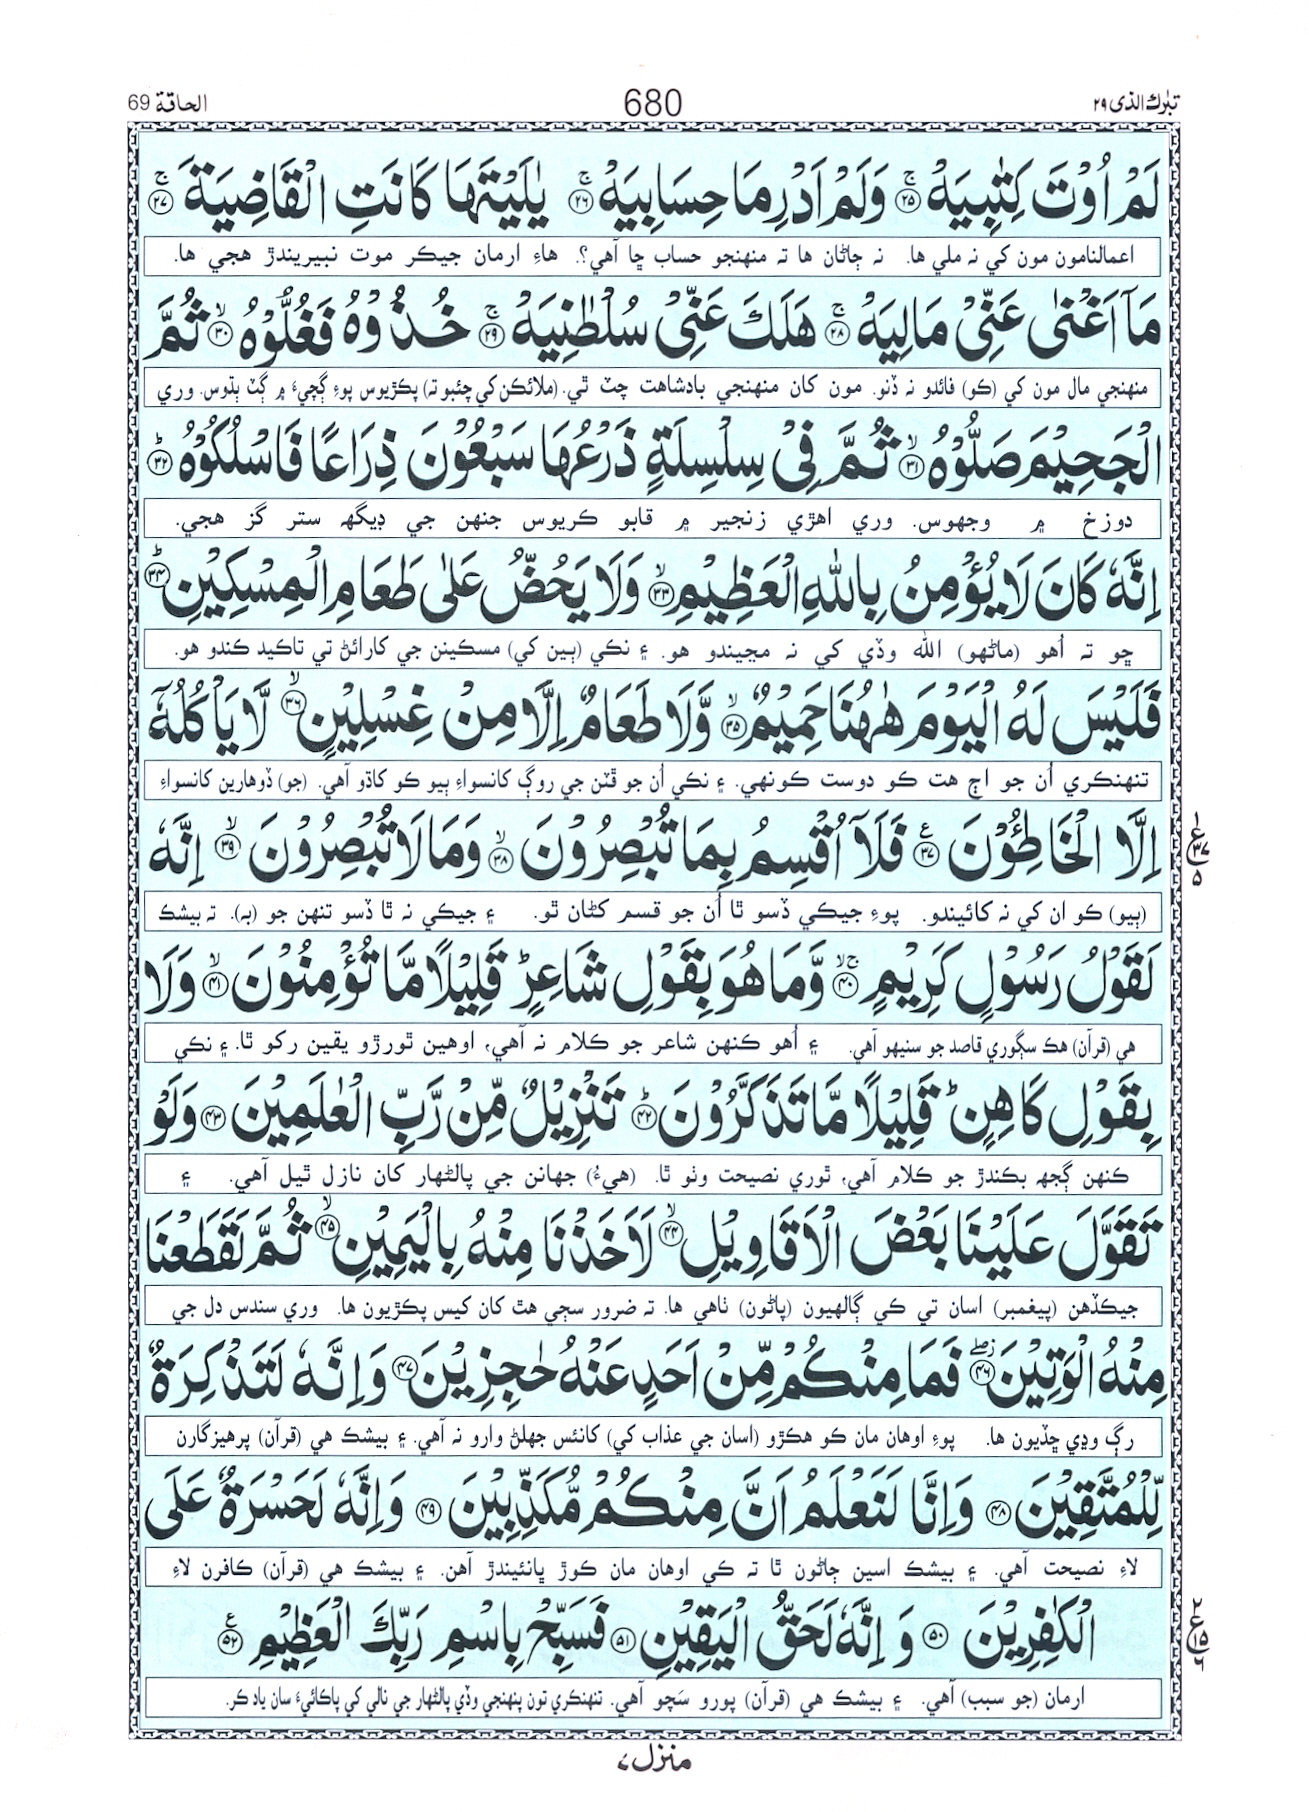 تبٰرك الذى ٢٩
680
الحاقة 69
لَمْ اُوْتَ كِتٰبِيَهْ ۚ‏﴿۲۵﴾ وَلَمْ اَدْرِ مَا حِسَابِيَهْ ۚ‏﴿۲۶﴾ يٰلَيْتَهَا كَانَتِ الْقَاضِيَةَ ۚ‏﴿۲۷﴾
اعمالنامون مون کي نہ ملي ها. نہ ڄاڻان ها تہ منهنجو حساب ڇا آهي؟. هاءِ ارمان جيڪر موت نبيريندڙ هجي ها.
مَاۤ اَغْنٰى عَنِّىْ مَالِيَهْ ۚ‏﴿۲۸﴾ هَلَكَ عَنِّىْ سُلْطٰنِيَهْ ۚ‏﴿۲۹﴾ خُذُوْهُ فَغُلُّوْهُ ۙ‏﴿۳۰﴾ ثُمَّ
منهنجي مال مون کي (ڪو) فائدو نہ ڏنو. مون کان منهنجي بادشاهت چٽ ٿي. (ملائڪن کي چئبو تہ) پڪڙيوس پوءِ ڳچيءَ ۾ ڳٽ ٻڌوس. وري
الْجَحِيْمَ صَلُّوْهُ ۙ‏﴿۳۱﴾ ثُمَّ فِىْ سِلْسِلَةٍ ذَرْعُهَا سَبْعُوْنَ ذِرَاعًا فَاسْلُكُوْهُ ؕ‏﴿۳۲﴾
دوزخ ۾ وجهوس. وري اهڙي زنجير ۾ قابو ڪريوس جنهن جي ڊيگهہ ستر گز هجي.
اِنَّهٗ كَانَ لَا يُؤْمِنُ بِاللّٰهِ الْعَظِيْمِ ۙ‏﴿۳۳﴾ وَلَا يَحُضُّ عَلٰى طَعَامِ الْمِسْكِيْنِ ؕ‏﴿۳۴﴾
ڇو تہ اُهو (ماڻهو) الله وڏي کي نہ مڃيندو هو. ۽ نڪي (ٻين کي) مسڪينن جي کارائڻ تي تاڪيد ڪندو هو.
فَلَيْسَ لَهُ الْيَوْمَ هٰهُنَا حَمِيْمٌ ۙ‏﴿۳۵﴾ وَّلَا طَعَامٌ اِلَّا مِنْ غِسْلِيْنٍ ۙ‏﴿۳۶﴾ لَّا يَاْكُلُهٗۤ
تنهنڪري اُن جو اڄ هت ڪو دوست ڪونهي. ۽ نڪي اُن جو ڦٽن جي روڳ کانسواءِ ٻيو ڪو کاڌو آهي. (جو) ڏوهارين کانسواءِ
اِلَّا الْخَاطِـُٔوْنَ ۚ‏﴿۳۷﴾ فَلَاۤ اُقْسِمُ بِمَا تُبْصِرُوْنَ ۙ‏﴿۳۸﴾ وَمَا لَا تُبْصِرُوْنَ ۙ‏﴿۳۹﴾ اِنَّهٗ
(ٻيو) ڪو ان کي نہ کائيندو. پوءِ جيڪي ڏسو ٿا اُن جو قسم کڻان ٿو. ۽ جيڪي نہ ٿا ڏسو تنهن جو (بہ). تہ بيشڪ
لَقَوْلُ رَسُوْلٍ كَرِيْمٍ ۚۙ‏﴿۴۰﴾ وَّمَا هُوَ بِقَوْلِ شَاعِرٍ ؕ قَلِيْلًا مَّا تُؤْمِنُوْنَ ۙ‏﴿۴۱﴾ وَلَا
هي (قرآن) هڪ سڳوري قاصد جو سنيهو آهي. ۽ اُهو ڪنهن شاعر جو ڪلام نہ آهي، اوهين ٿورڙو يقين رکو ٿا. ۽ نڪي
بِقَوْلِ كَاهِنٍ ؕ قَلِيْلًا مَّا تَذَكَّرُوْنَ ؕ‏﴿۴۲﴾ تَنْزِيْلٌ مِّنْ رَّبِّ الْعٰلَمِيْنَ ‏﴿۴۳﴾ وَلَوْ
ڪنهن ڳجهہ ٻڪندڙ جو ڪلام آهي، ٿوري نصيحت وٺو ٿا. (هيءُ) جهانن جي پالڻهار کان نازل ٿيل آهي. ۽
تَقَوَّلَ عَلَيْنَا بَعْضَ الْاَقَاوِيْلِ ۙ‏﴿۴۴﴾ لَاَخَذْنَا مِنْهُ بِالْيَمِيْنِ ۙ‏﴿۴۵﴾ ثُمَّ لَقَطَعْنَا
جيڪڏهن (پيغمبر) اسان تي ڪي ڳالهيون (پاڻون) ٺاهي ها. تہ ضرور سڄي هٿ کان کيس پڪڙيون ها. وري سندس دل جي
مِنْهُ الْوَتِيْنَ ‏﴿۴۶﴾ فَمَا مِنْكُمْ مِّنْ اَحَدٍ عَنْهُ حٰجِزِيْنَ ‏﴿۴۷﴾ وَاِنَّهٗ لَتَذْكِرَةٌ
رڳ وڍي ڇڏيون ها. پوءِ اوهان مان ڪو هڪڙو (اسان جي عذاب کي) کانئس جهلڻ وارو نہ آهي. ۽ بيشڪ هي (قرآن) پرهيزگارن
لِّلْمُتَّقِيْنَ ‏﴿۴۸﴾ وَاِنَّا لَنَعْلَمُ اَنَّ مِنْكُمْ مُّكَذِّبِيْنَ ‏﴿۴۹﴾ وَاِنَّهٗ لَحَسْرَةٌ عَلَى
لاءِ نصيحت آهي. ۽ بيشڪ اسين ڄاڻون ٿا تہ ڪي اوهان مان ڪوڙ ڀانئيندڙ آهن. ۽ بيشڪ هي (قرآن) ڪافرن لاءِ
الْكٰفِرِيْنَ ‏﴿۵۰﴾ وَ اِنَّهٗ لَحَقُّ الْيَقِيْنِ ‏﴿۵۱﴾ فَسَبِّحْ بِاسْمِ رَبِّكَ الْعَظِيْمِ ‏﴿۵۲﴾
ارمان (جو سبب) آهي. ۽ بيشڪ هي (قرآن) پورو سَچو آهي. تنهنڪري تون پنهنجي وڏي پالڻهار جي نالي کي پاڪائيءَ سان ياد ڪر.
منزل ۷